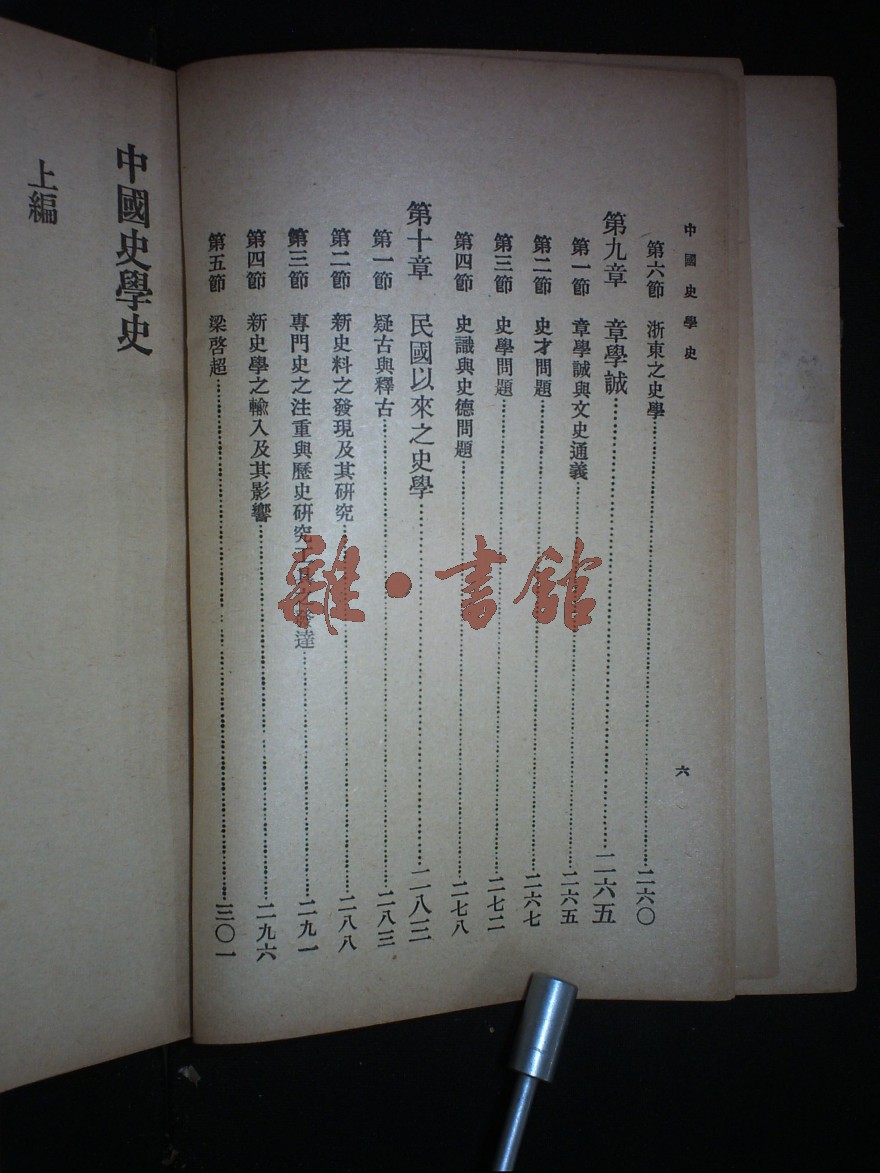 中國史學史
六
第六節　浙東之史學……二六〇
第九章　章學誠……二六五
第一節　章學誠與文史通義……二六五
第二節　史才問題……二六七
第三節　史學問題……二七二
第四節　史識與史德問題……二七八
第十章　民國以來之史學……二八三
第一節　疑古與釋古……二八三
第二節　新史料之發現及其研究……二八八
第三節　專門史之注重與歷史研究工具之發達……二九一
第四節　新史學之輸入及其影響……二九六
第五節　梁啓超……三〇一
中國史學史
上編
雜·書館